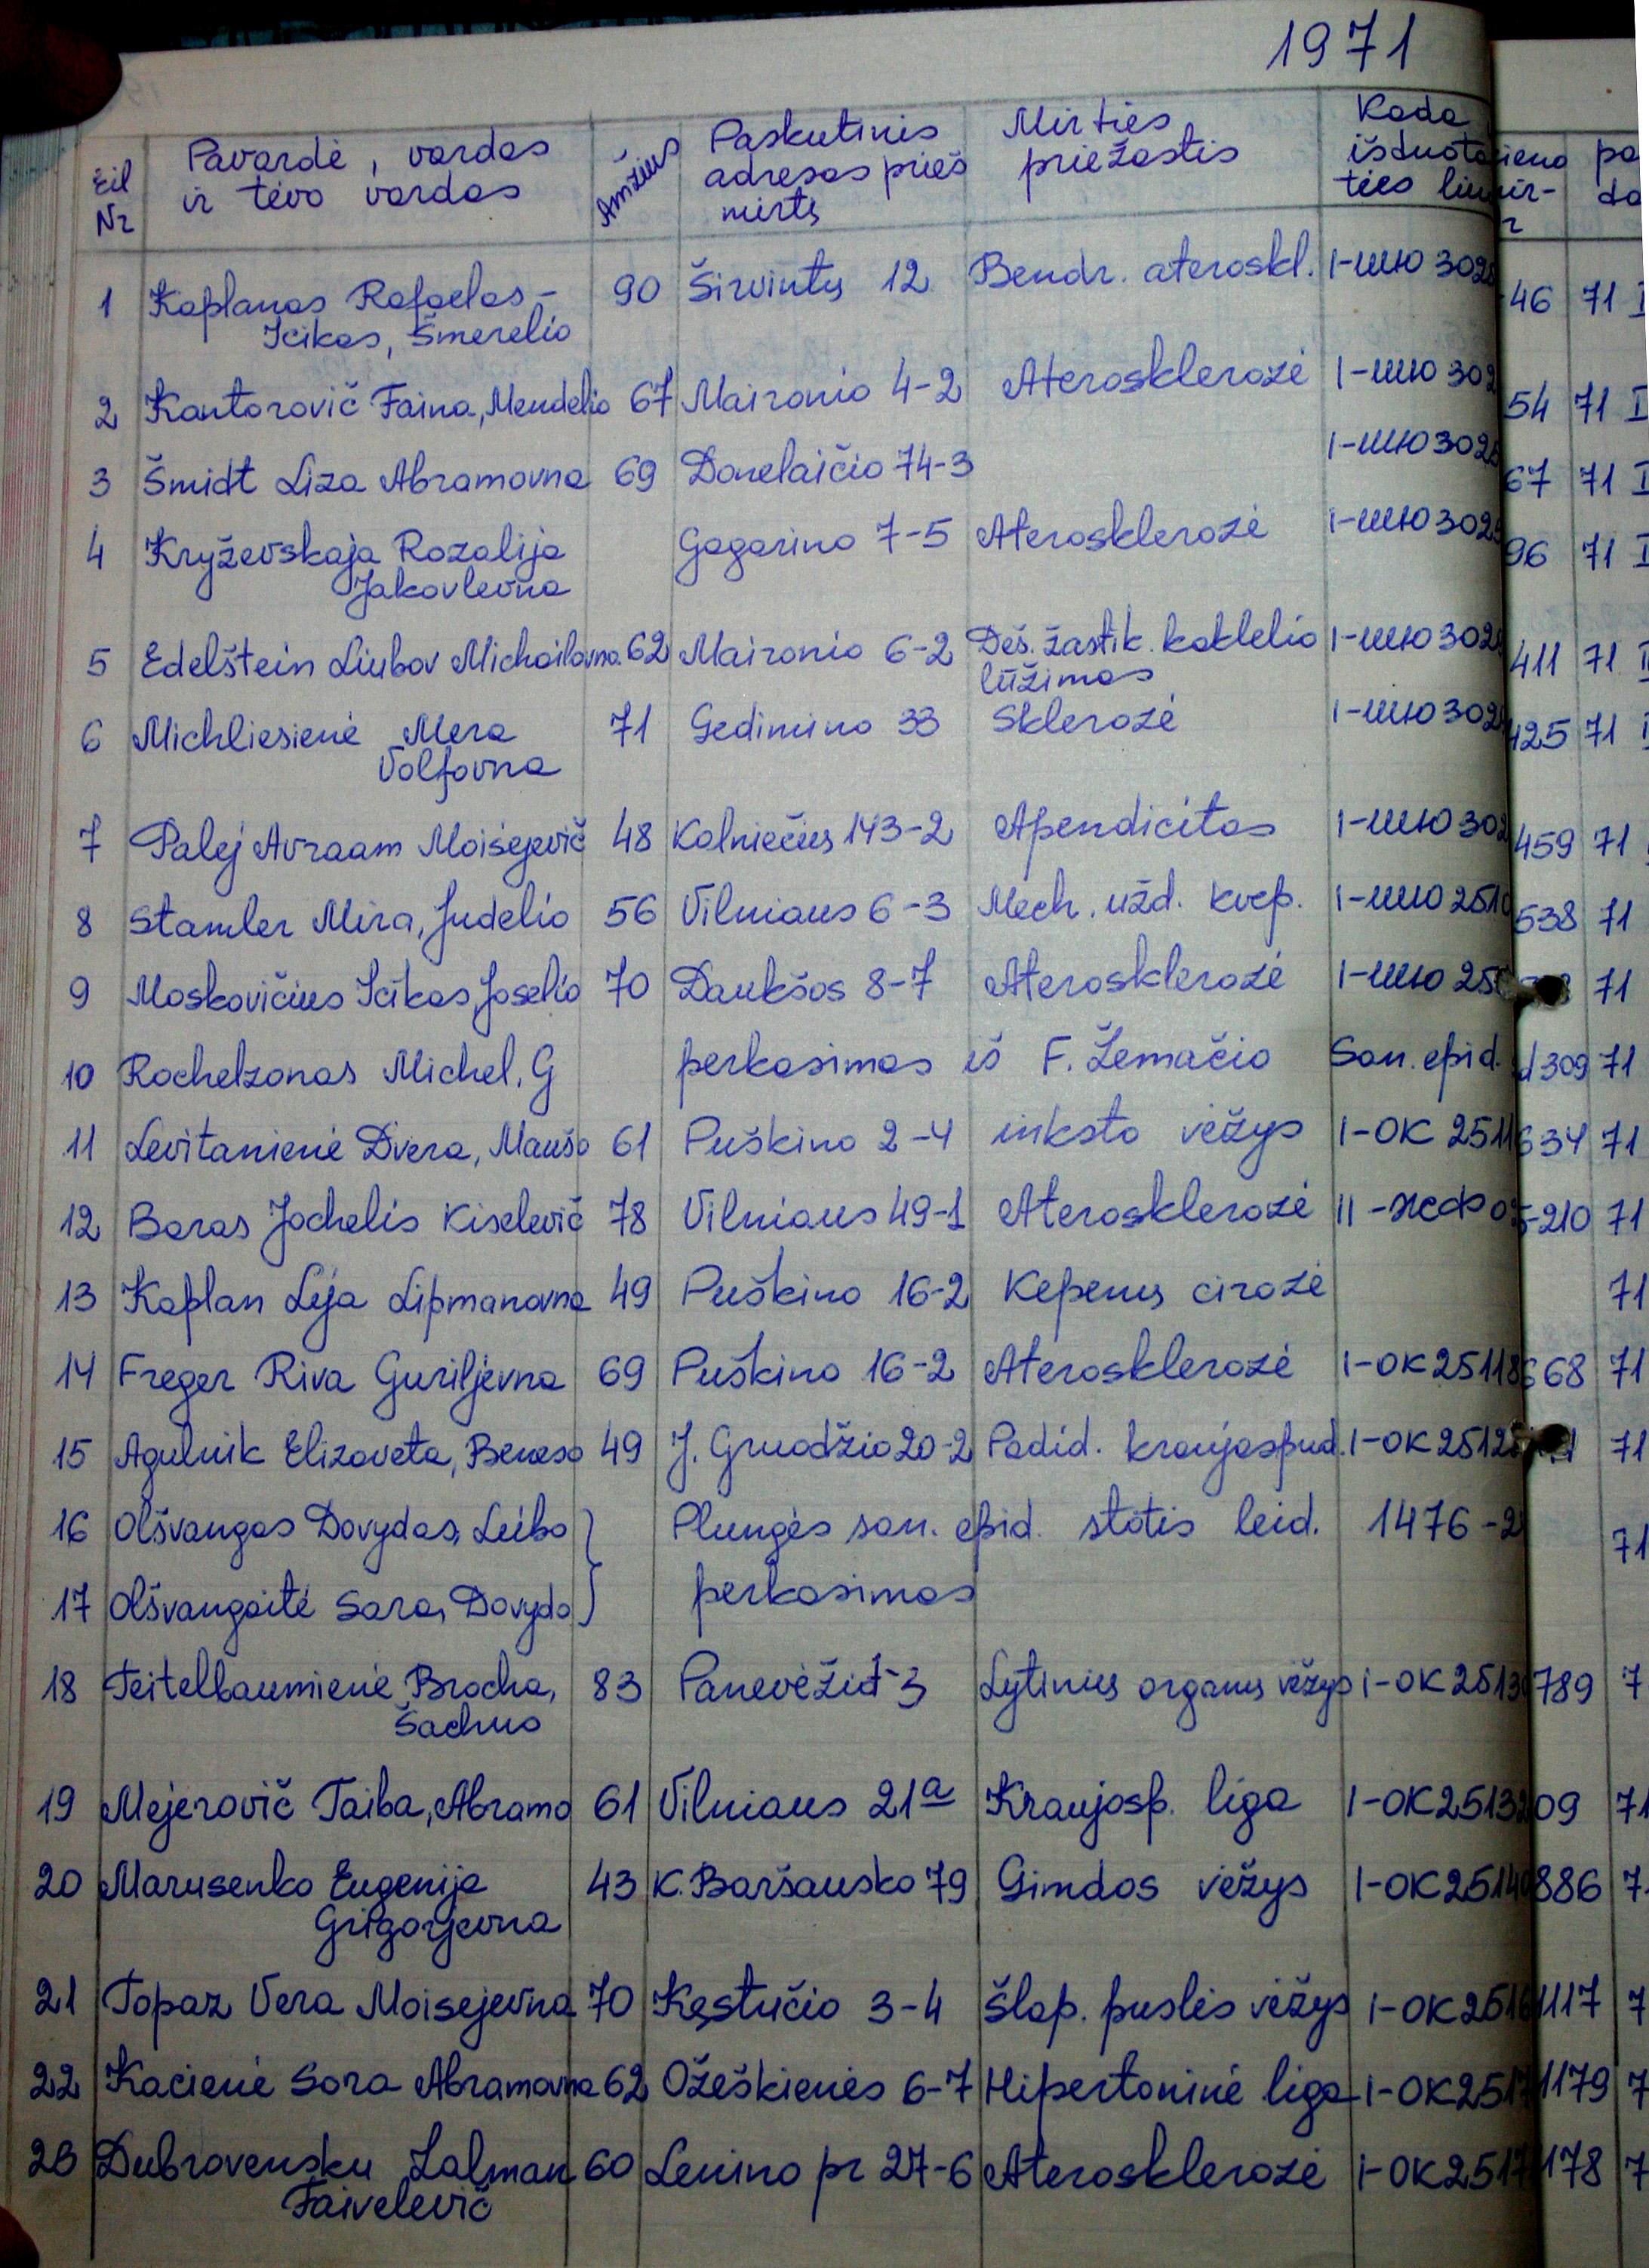 1971
Eil Nr
Pavardė, vardas ir tėvo vardas
Amžius
Paskutinis adresas prieš mirtį
Mirties priežastis
Kada išduota
1 Kaplanas Rafaelas- 90 Širvintų 12 Bendr. ateroskl. I-ШЮ 302 46 71
Icikas, Šmerelio
2 Kantorovič Faina, Mendelio 67 Maironio 4-2 Aterosklerozė I-ШЮ 302 54 71
3 Šmidt Liza Abramovna 69 Donelaičio 74-3 I-ШЮ 302 67 71
4 Kryževskaja Rozalija Gagarino 7-5 Aterosklerozė I-ШЮ 302 96 71
Jakovlevna
5 Edelštein Liubov Michailovna 62 Maironio 6-2 Deš. žastik. kaklelio I-ШЮ 302 411 71
lūžimas
6 Michliesienė Mera 71 Gedimino 33 Sklerozė I-ШЮ 302 425 71
Volfovna
7 Palej Avraam Moisejevič 48 Kalniečių 143-2 Apendicitas I-ШЮ 302 459 71
8 Stamler Mira, Judelio 56 Vilniaus 6-3 Mech. užd. kvėp. I-ШЮ 251 538 71
9 Moskovičius Icikas, Joselio 70 Daukšos 8-7 Aterosklerozė I-ШЮ 25 71
10 Rochelzonas Michel, G perkasimas iš F. Žemačio San. epid. 309 71
11 Levitanienė Dvera, Maušo 61 Puškino 2-4 inksto vėžys I-OK 2511 634 71
12 Baras Jochelis Kiselevič 78 Vilniaus 49-1 Aterosklerozė II-ЖФ 210 71
13 Kaplan Lija Lipmanovna 49 Puškino 16-2 Kepenų cirozė 71
14 Freger Riva Guriljevna 69 Puškino 16-2 Aterosklerozė I-OK 25118 668 71
15 Agulnik Elizaveta, Beneso 49 J. Gruodžio 20-2 Padid. kraujospud. I-OK 2512 71
16 Olšvangas Dovydas, Leibo Plungės san. epid. stotis leid. 1476-2 71
17 Olšvangaitė Sara, Dovydo perkasimas
18 Teitelbaumienė Brocha, 83 Lytinių organų vėžys I-OK 2513 789 7
Šachno
19 Mejerovič Taiba, Abramo 61 Vilniaus 21a Kraujosp. liga I-OK 2513 09 71
20 Marusenko Eugenija 43 K. Baršausko 79 Gimdos vėžys I-OK 2514 886 7
Grigorjevna
21 Topaz Vera Moisejevna 70 Kęstučio 3-4 Šlap. puslės vėžys I-OK 2516 1117 7
22 Kacienė Sora Abramovna 62 Ožeškienės 6-7 Hipertoninė liga I-OK 2517 1179 7
23 Dubrovensku Zalman 60 Lenino pr 27-6 Aterosklerozė I-OK 2517 1178 7
Faivelevič